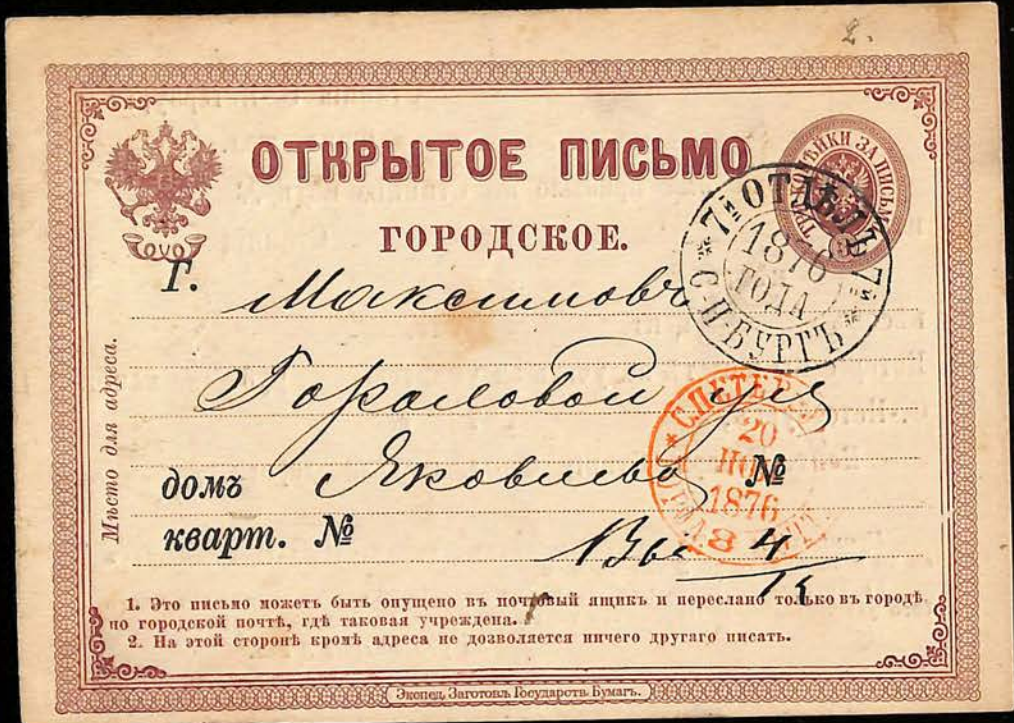 2.
ОТКРЫТОЕ ПИСЬМО
ГОРОДСКОЕ.
ТРИ КОПѢЙКИ ЗА ПИСЬМО
7й ОТДѢЛЪ 7й
1876
ГОДА
С-П-БУРГЪ
Г. Максимовъ
Мѣсто для адреса.
С.ПЕТЕРБ
20
НОЯ
1876
8
домъ Яковлева №
кварт. №
4
1. Это письмо можетъ быть опущено въ почтовый ящикъ и переслано только въ городѣ
по городской почтѣ, гдѣ таковая учреждена.
2. На этой сторонѣ кромѣ адреса не дозволяется ничего другаго писать.
Экспед. Заготовл. Государств. Бумагъ.